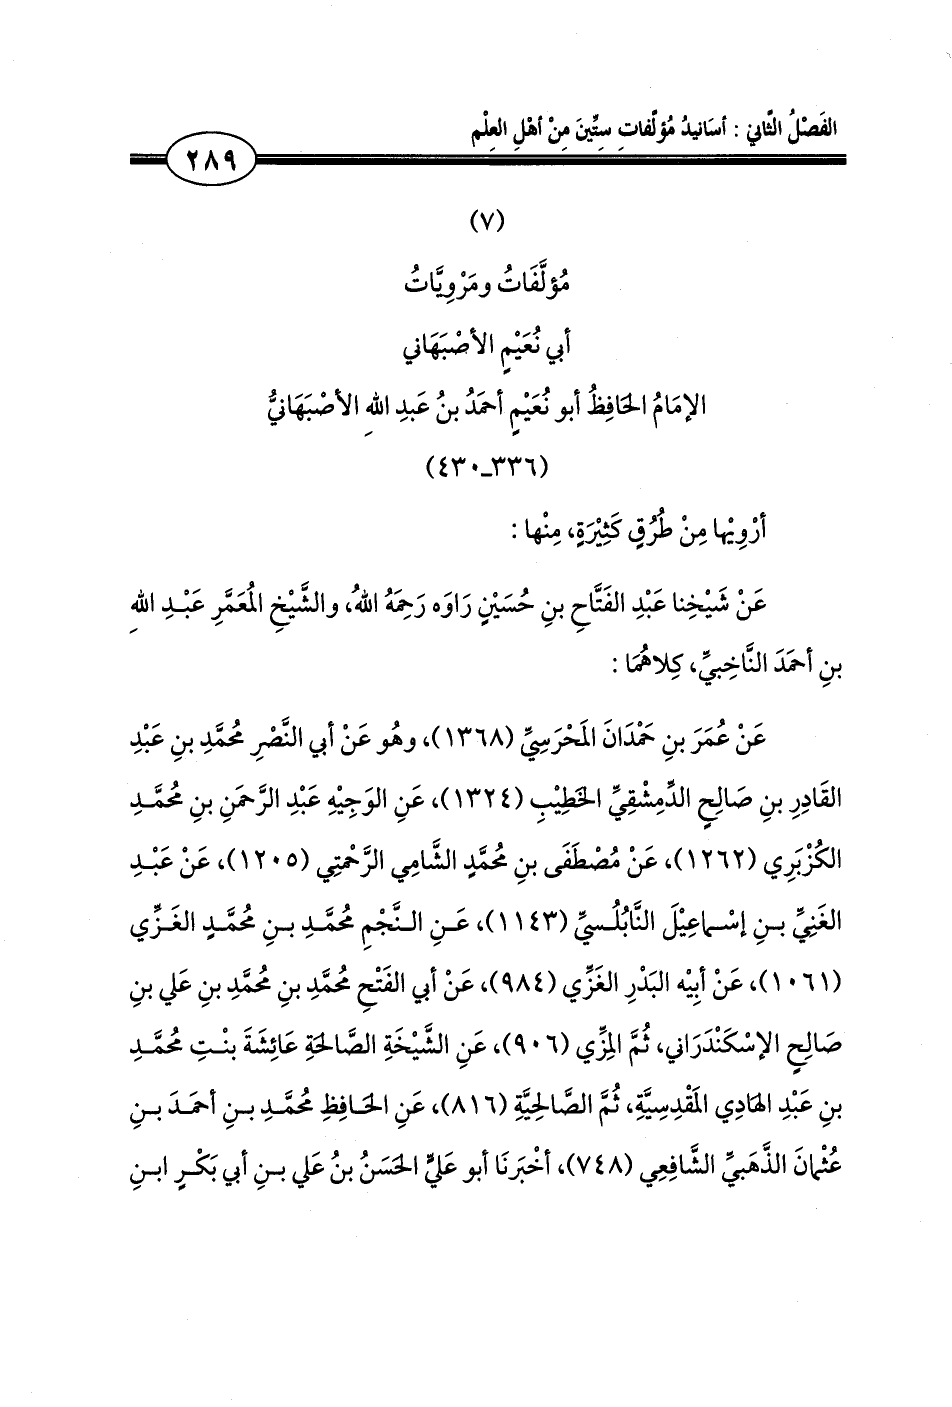 الفَصْلُ الثَّاني : أسَانيدُ مُؤلَّفاتِ ستِّينَ مِنْ أهْلِ العِلْمِ
٢٨٩
(٧)
مُؤلَّفَاتُ ومَرْوِيَّاتُ
أبي نُعَيْمٍ الأصْبَهَاني
الإمَامُ الحَافِظُ أبو نُعَيْمٍ أحمَدُ بنُ عَبدِ اللهِ الأصْبَهَانيُّ
(٣٣٦ـ٤٣٠)
أرْوِيْها مِنْ طُرُقٍ كَثِيْرَةٍ، مِنْها :
عَنْ شَيْخِنا عَبْدِ الفَتَّاحِ بنِ حُسَيْنٍ رَاوَه رَحِمَهُ اللهُ، والشَّيْخِ المُعَمَّرِ عَبْـدِ اللهِ
بنِ أحمَدَ النَّاخِبيِّ، كِلاهُمَا :
عَنْ عُمَرَ بنِ حَمْدَانَ المَحْرَسِيِّ (١٣٦٨)، وهُو عَنْ أبي النَّصْرِ مُحمَّدِ بنِ عَبْدِ
القَادِرِ بنِ صَالِحٍ الدِّمِشْقِيِّ الخَطِيْبِ (١٣٢٤)، عَنِ الوَجِيْهِ عَبْدِ الرَّحمَنِ بنِ مُحمَّـدٍ
الكُزْبَرِي (١٢٦٢)، عَنْ مُصْطَفَى بنِ مُحمَّدٍ الشَّامي الرَّحْمتِي (١٢٠٥)، عَنْ عَبْـدِ
الغَنِيِّ بـنِ إسْـماعِيْلَ النَّابُلْسيِّ (١١٤٣)، عَـنِ الـنَّجْمِ مُحمَّـدِ بـنِ مُحمَّـدٍ الغَـزِّي
(١٠٦١)، عَنْ أبِيْه البَدْرِ الغَزِّي (٩٨٤)، عَنْ أبي الفَتْحِ مُحمَّدِ بنِ مُحمَّدِ بنِ عَلي بنِ
صَالِحٍ الإسْكَنْدَرَاني، ثُمَّ المِزِّي (٩٠٦)، عَنِ الشَّيْخَةِ الصَّالحَةِ عَائِشَةَ بنْـتِ مُحمَّـدِ
بنِ عَبْدِ الهَادِي المَقْدِسِيَّةِ، ثُمَّ الصَّالحِيَّةِ (٨١٦)، عَنِ الحَافِظِ مُحمَّدِ بـنِ أحمَـدَ بـنِ
عُثْمانَ الذَّهَبيِّ الشَّافِعِي (٧٤٨)، أخْبَرنَا أبو عَليٍّ الحَسَنُ بنُ عَلي بـنِ أبي بَكْـرٍ ابـنِ